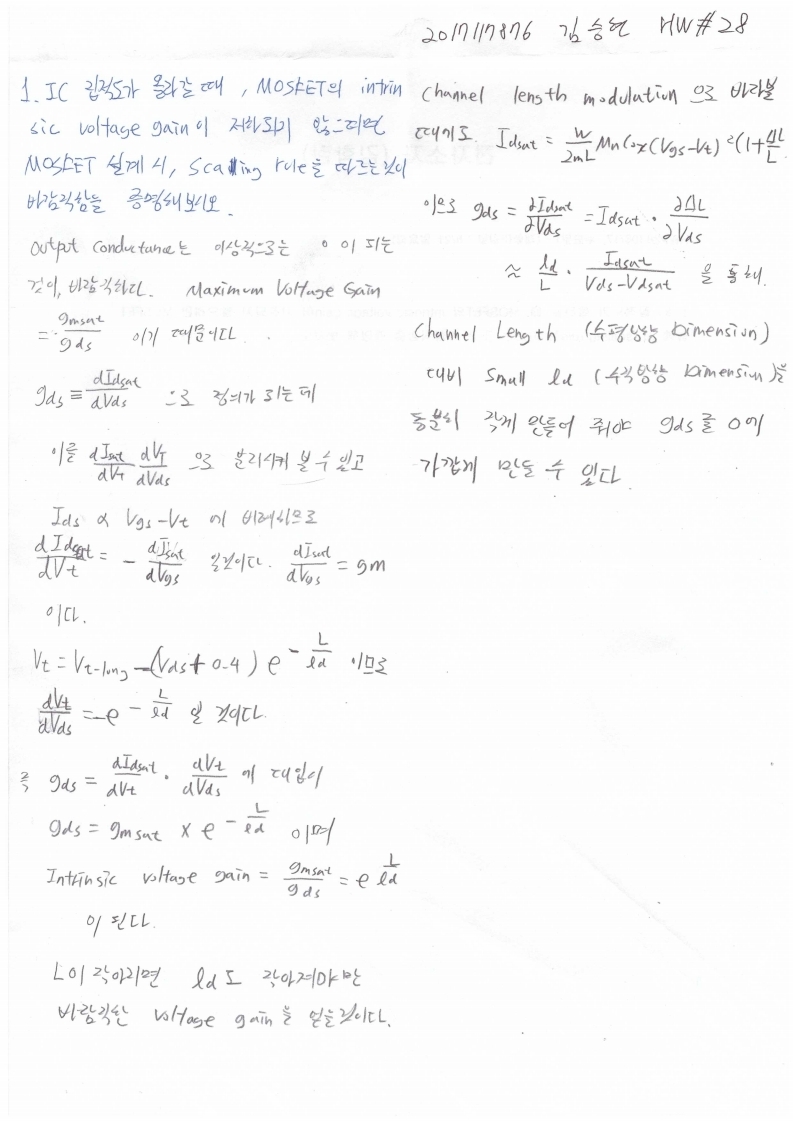 2017117876 김승현 HW#28
1. IC 집적도가 올라갈 때, MOSFET의 intrin
sic voltage gain이 저하되지 않으려면
MOSFET 설계 시, Scaling rule을 따르는것이
바람직함을 증명해보시오.
output conductance는 이상적으로는 0 이 되는
것이, 바람직하다. Maximum Voltage Gain
= gmsat/gds 이기 때문이다.
gds ≡ dIdsat/dVds 으로 정의가 되는데
이를 dIsat/dVt dVt/dVds 으로 분리시켜 볼 수 있고
Ids ∝ Vgs-Vt 에 비례식으로
dIdsat/dVt = - dIsat/dVgs 일것이다. dIsat/dVgs = gm
이다.
Vt = Vt-long -(Vds+0.4) e^(-L/ld) 이므로
dVt/dVds = -e^(-L/ld) 일 것이다
즉 gds = dIdsat/dVt · dVt/dVds 에 대입해
gds = gmsat × e^(-L/ld) 이며
Intrinsic voltage gain = gmsat/gds = e^(L/ld)
이 된다.
L이 작아지면 ld도 작아져야만
바람직한 voltage gain을 얻을것이다.
Channel length modulation 으로 바라볼
때에도 Idsat = W/2mL Mn Cox(Vgs-Vt)²(1+ΔL/L
이므로 gds = ∂Idsat/∂Vds = Idsat · ∂ΔL/∂Vds
≈ ld/L · Idsat/Vds-Vdsat 을 통해.
Channel Length (수평방향 Dimension)
대비 Small ld (수직방향 Dimension)을
충분히 작게 만들어 줘야 gds를 0에
가깝게 만들 수 있다